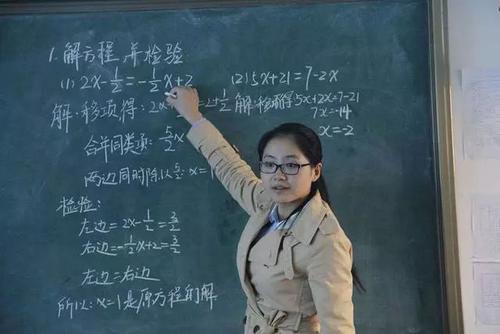 1.解方程,并检验
(1) 2x-1/2=-1/2x+2
解:移项得:2x =2+1/2
合并同类项:5/2x
两边同时除以5/2:x=1
检验:
左边=2x-1/2=3/2
右边=-1/2x+2=3/2
左边=右边
所以:x=1是原方程的解
(2) 5x+21=7-2x
解:移项得5x+2x=7-21
7x=-14
x=-2